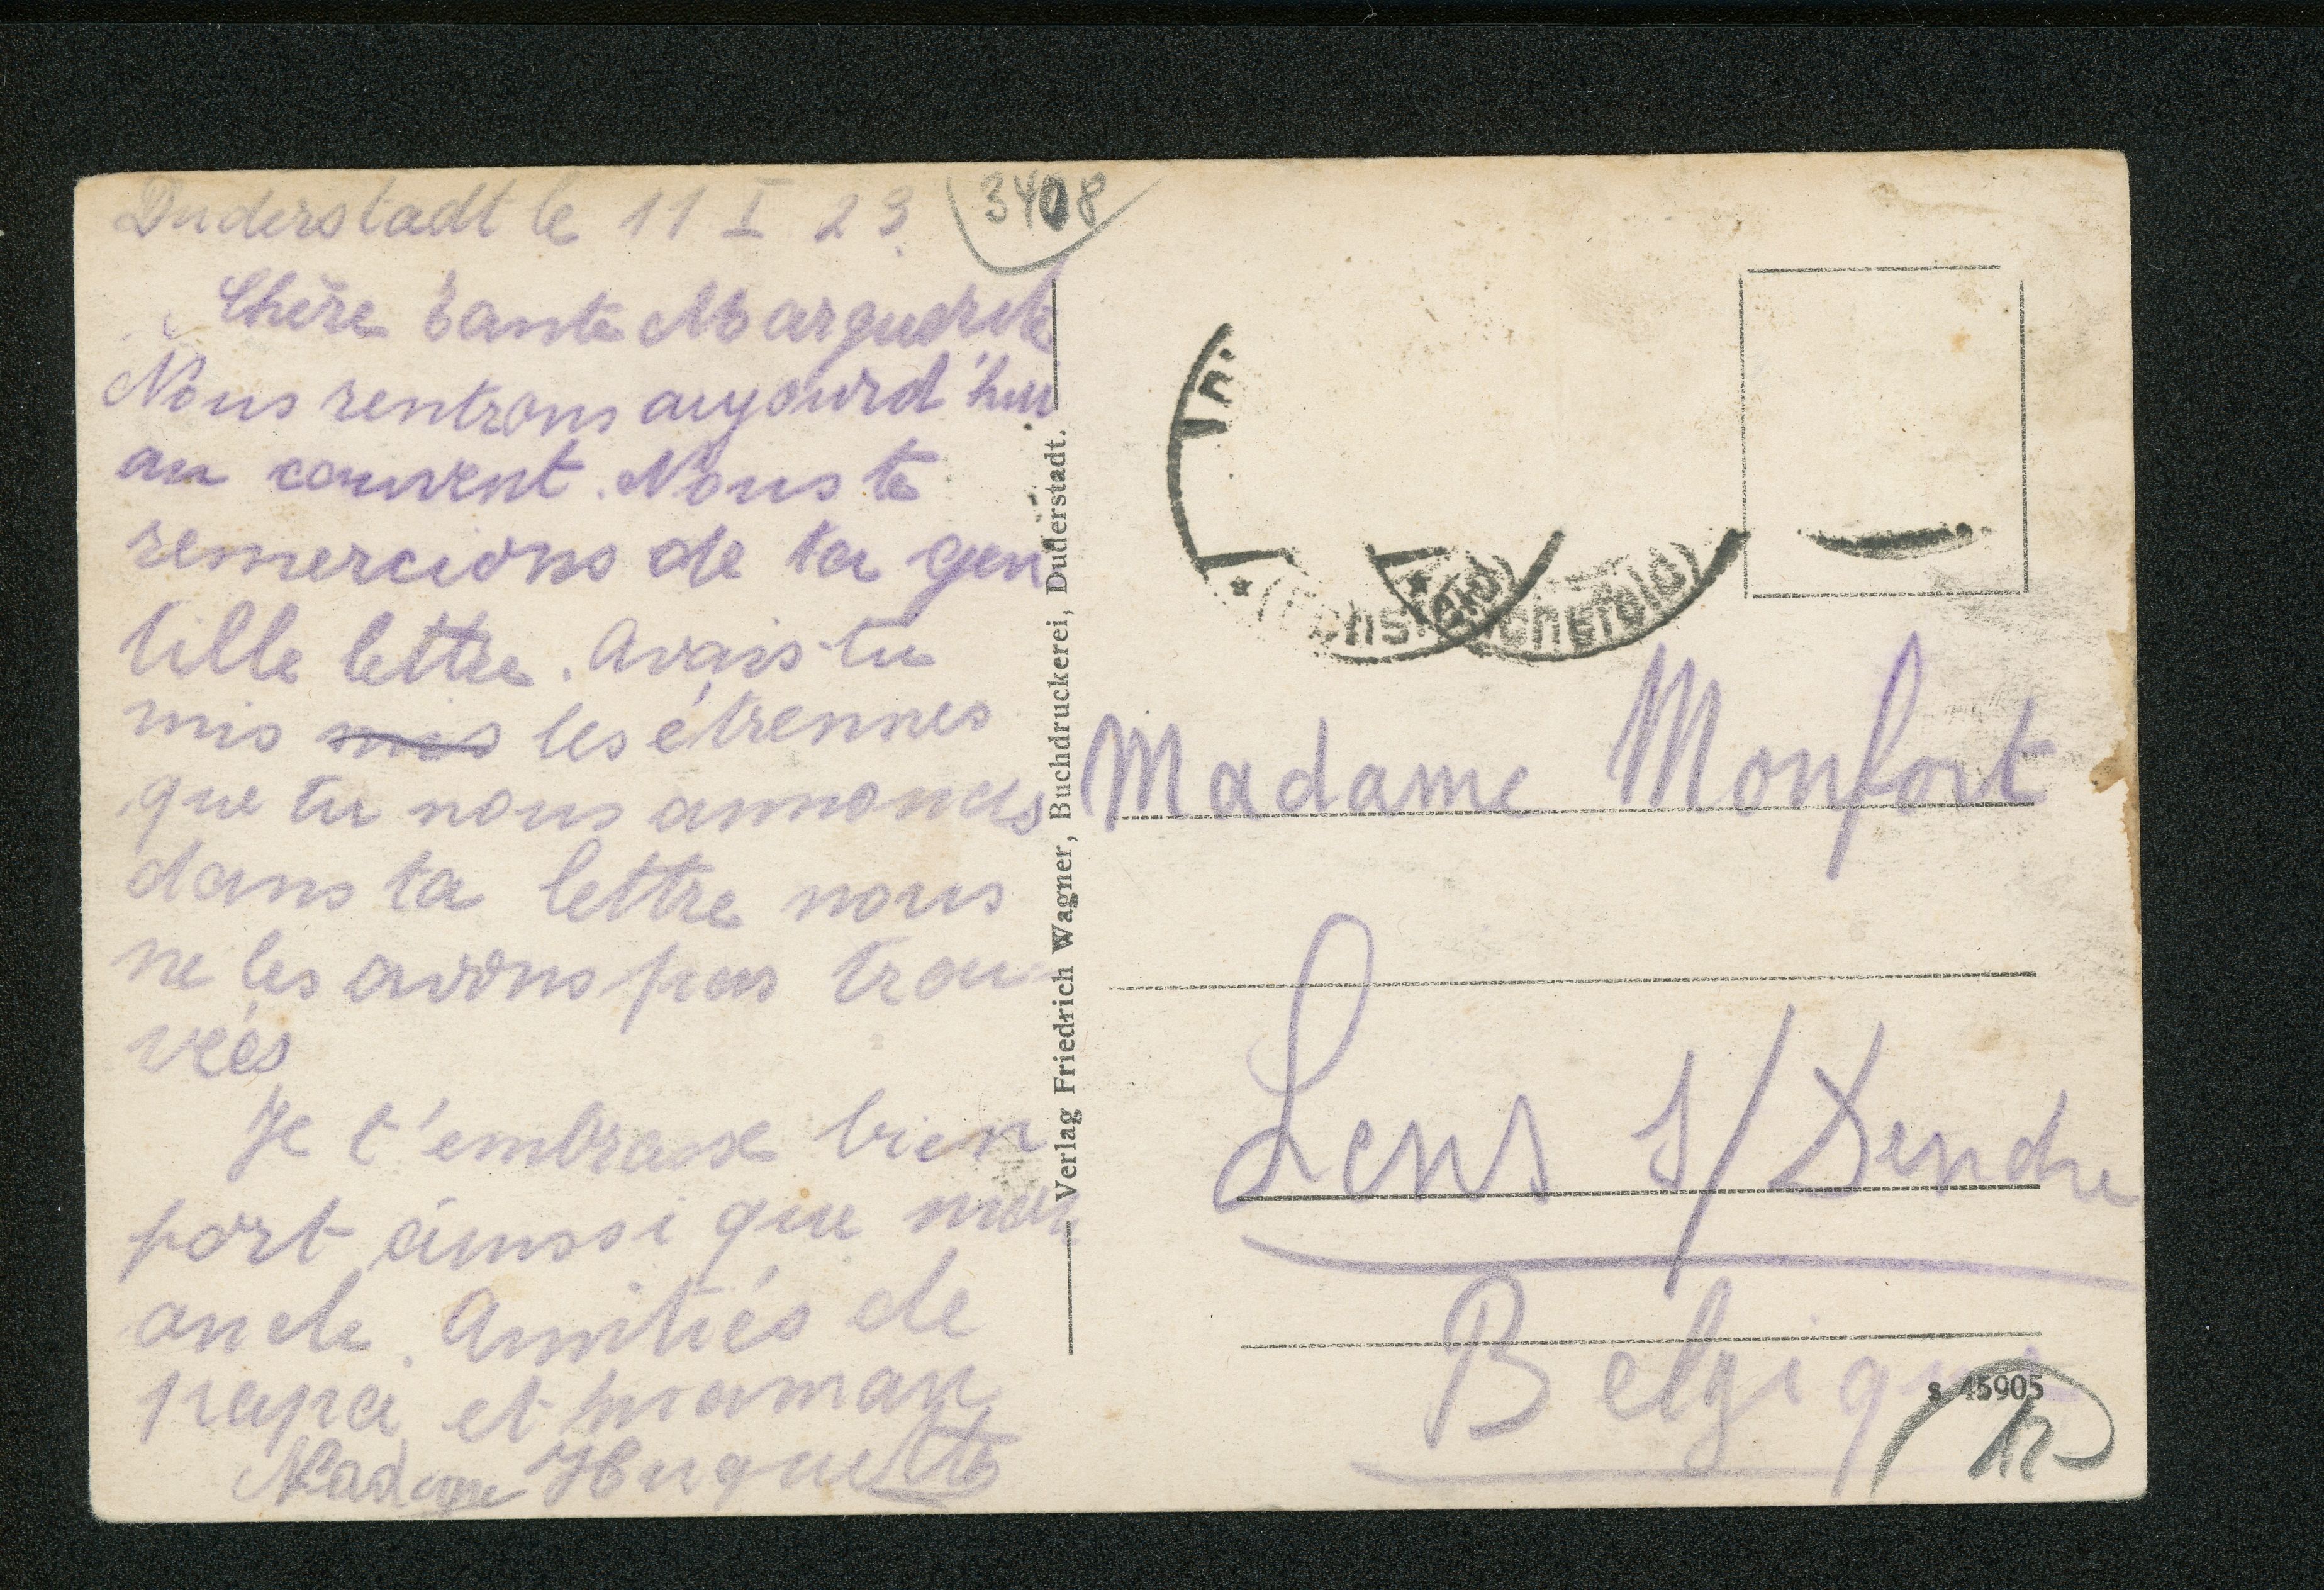 Duderstadt le 11 I 23
3408
Chère tante Marguerite
Nous rentrons aujourd'hui
au couvent. Nous te
remercions de ta gen
tille lettre. Avais-tu
mis mis les étrennes
que tu nous annonces
dans ta lettre nous
ne les avons pas trou-
vées
Je t'embrasse bien
fort ainssi que mon
oncle. Amitiés de
papa et maman
Huguette
Verlag Friedrich Wagner, Buchdruckerei, Duderstadt.
(Eichsfeld)
Eichsfeld)
Madame Monfort
Lens s/Dendre
Belgique
s 45905
12